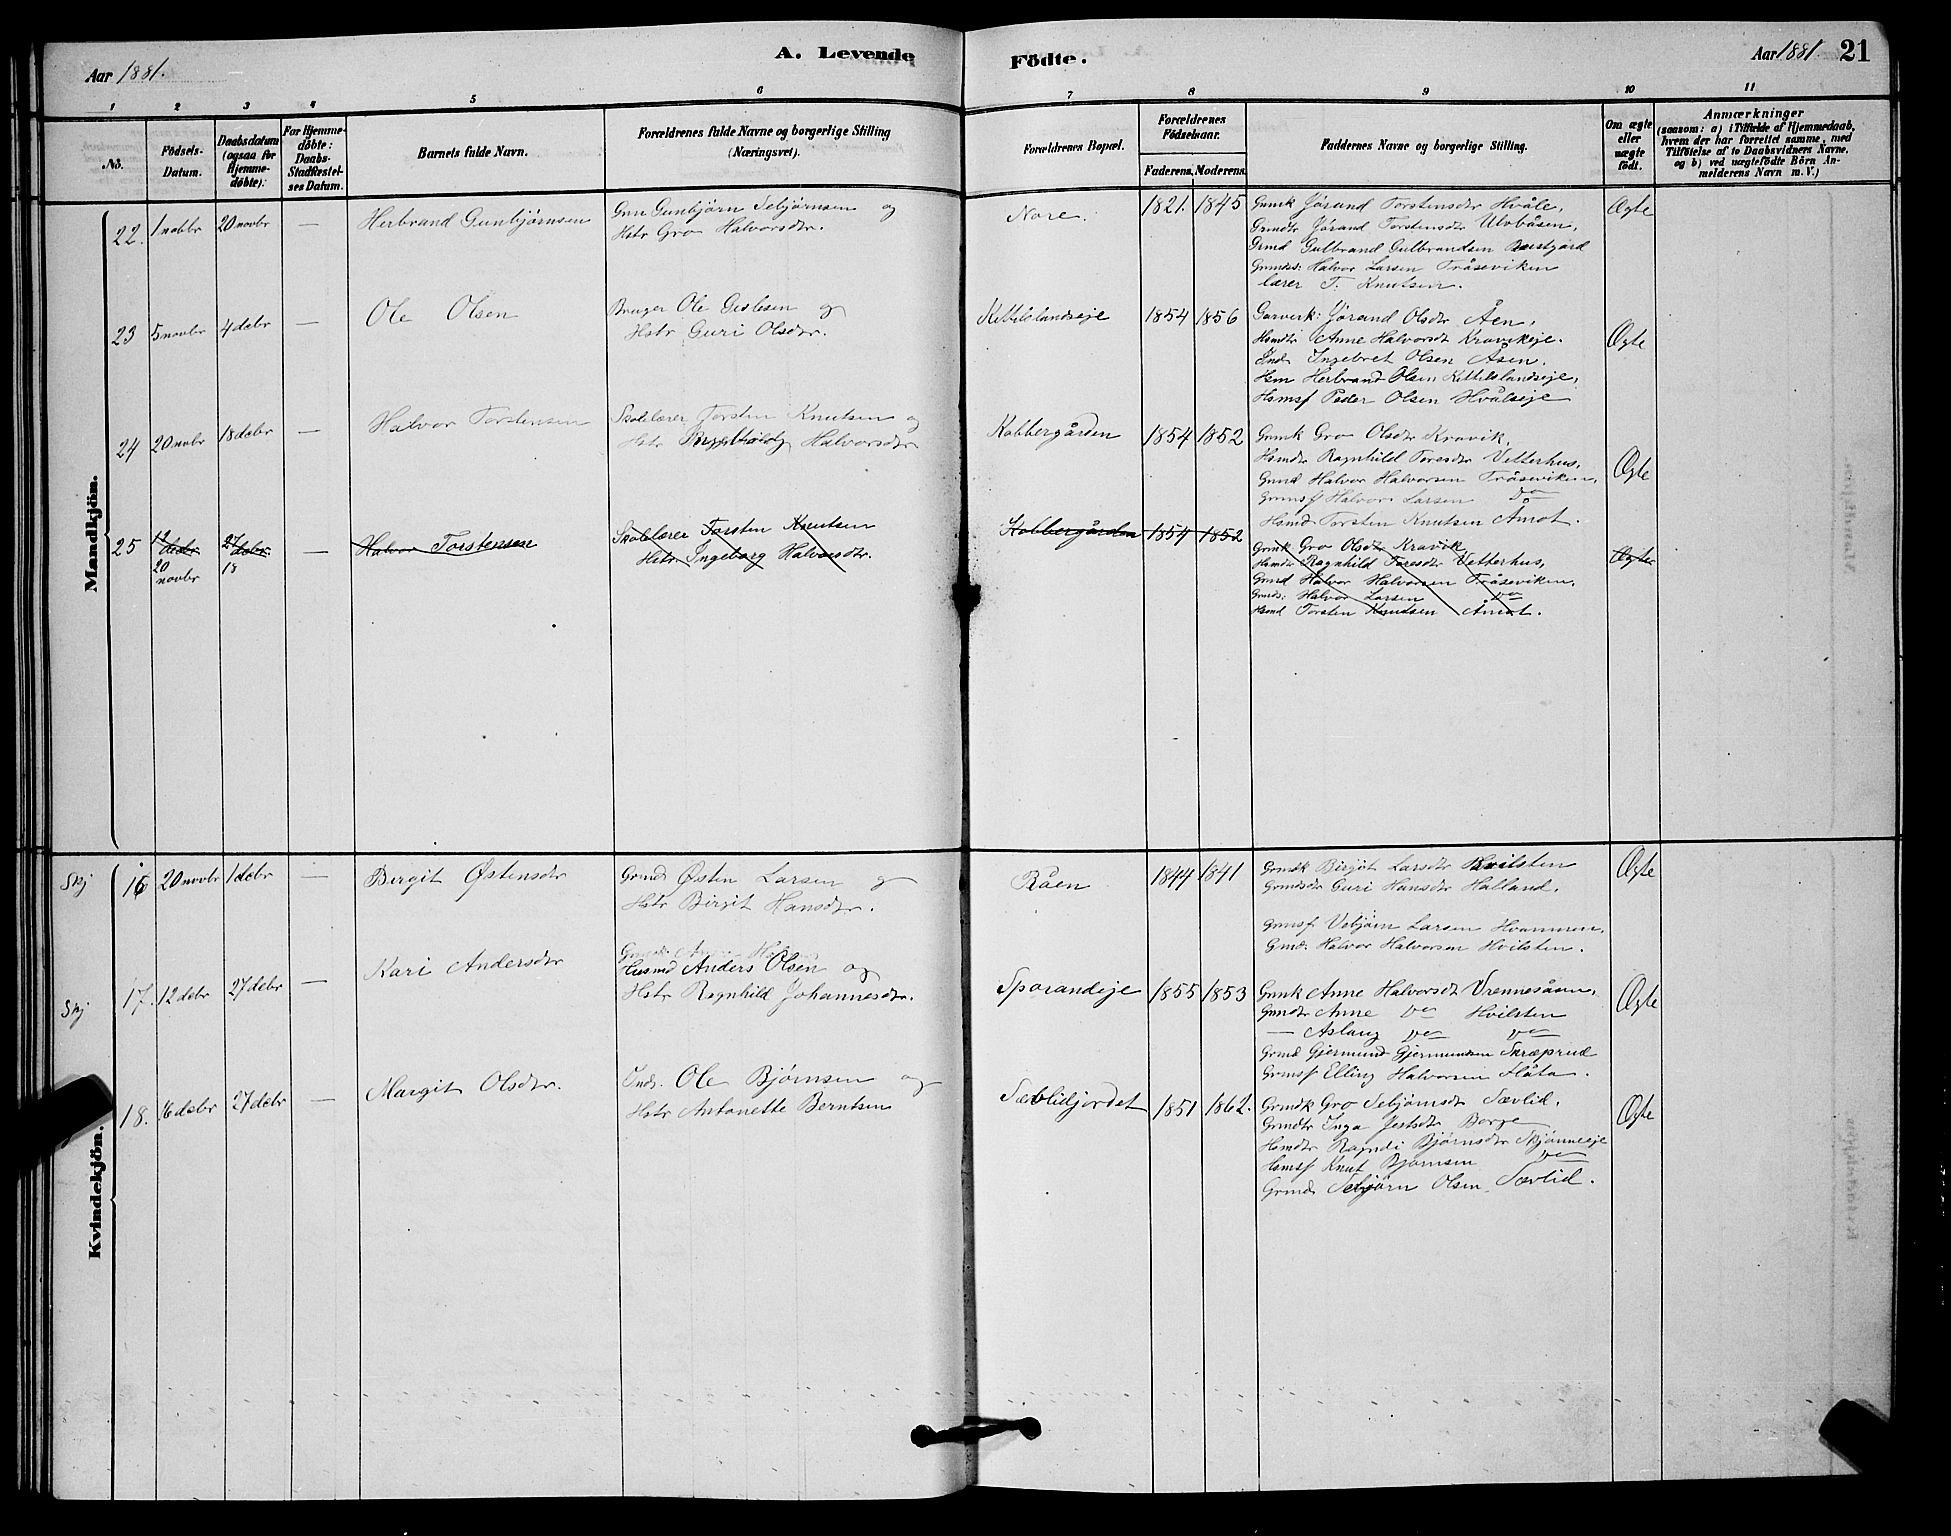 Aar 1881. A. Levende Födte. Aar 1881. 21
1 2 3 4 5 6 7 8 9 10 11
No.
Födsels-
Datum.
Daabsdatum
(ogsaa for
Hjemme-
döbte).
For Hjemme-
döbte:
Daabs-
Stadfæstel-
ses Datum.
Barnets fulde Navn.
Forældrenes fulde Navne og borgerlige Stilling
(Næringsvei).
Forældrenes Bopæl.
Forældrenes
Födselsaar.
Faderens. Moderens.
Faddernes Navne og borgerlige Stilling.
Om ægte
eller
uægte
födt.
Anmærkninger
(saasom: a) i Tilfælde af Hjemmedaab,
hvem der har forrettet samme, med
Tilföielse af to Daabsvidners Navne,
og b) ved uægtefödte Börn An-
melderens Navn m. V.)
Mandkjön.
22. 1 novbr 20 novbr — Herbrand Gunbjørnsen
Gmn Gunbjörn Sebjørnsen og
Hstr Gro Halvorsdtr.
Nore. 1821. 1845
Gmnk Jørand Torstensdtr Hvåle,
Grmdtr Jørand Torstensdtr Ulvbåsen,
Grmd Gulbrand Gulbrandsen
Grmds: Halvor Larsen Tråseviken
lærer T. Knutsen.
Ægte
23 5 novbr 4 debr — Ole Olsen
Bruger Ole Gislesen og
Hstr Guri Olsdtr.
Kittilslandseje 1854 1856
Garverk: Jörand Olsdtr Åen,
Hsmdtr Anne Halvorsdt Kravikeje.
Ind. Ingebret Olsen Åsen.
Hsm Herbrand Olsen Kittilslandseje,
Hsmsf Peder Olsen Hvåleeje
Ægte
24 20 novbr 18 debr — Halvor Torstensen
Skolelærer Torsten Knutsen og
Hstr Ingeborg Halvorsdtr
Kobbergården 1854 1852
Gmnk Gro Olsdtr Kravik,
Hsmdtr Ragnhild Toresdtr Vetterhus,
Gmd Halvor Halvorsen Tråseviken,
Grmsf Halvor Larsen do
Hsmd Torsten Knutsen Åmot.
Ægte
25 12 debr 27 debr — Halvor Torstensen
20 novbr 18
Skolelærer Torsten Knutsen
Hstr Ingeborg Halvorsdtr.
Kobbergården 1854 1852
Gmnk Gro Olsdtr Kravik,
Hsmdtr Ragnhild Toresdtr Vetterhus,
Gmd Halvor Halvorsen Tråseviken,
Gmds: Halvor Larsen do
Hsmd Torsten Knutsen Åmot.
Ægte
Kvindekjön.
Skj 16 20 novbr 1 debr — Birgit Østensdtr
Grmd Østen Larsen og
Hstr Birgit Hansdtr.
Råen 1844 1841
Grmdk Birgit Larsdtr Hvilsten
Grmdsdtr Guri Hansdtr Halland.
Grmsf Vebjørn Larsen Hvammen.
Gmd: Halvor Halvorsen Hvilsten.
Ægte
Skj 17. 12 debr 27 debr — Kari Andersdtr
Husmd Anders Olsen og
Hstr Ragnhild Johannesdtr.
Sporandeje 1855 1853
Gmnk Anne Halvorsdt Vrennesåsen,
Gmdtr Anne do Hvilsten
— Aslaug do do
Grmd Gjermund Gjermundsen Skræprud
Grmsf Elling Halvorsen Flåta.
Ægte
18. 16 debr 27 debr — Margit Olsdtr.
Inds. Ole Bjørnsen og
Hstr Antonette Berntsen
Sævlidjordet 1851 1862.
Grmdk Gro Sebjørnsdt Sævlid,
Grmdtr Inga Jestsdtr Borge
Hsmdtr Ragndi Bjørnsdtr Skjønneeje
Hsmsf Knut Bjørnsen do
Grmds Sebjørn Olsen Sævlid.
Ægte